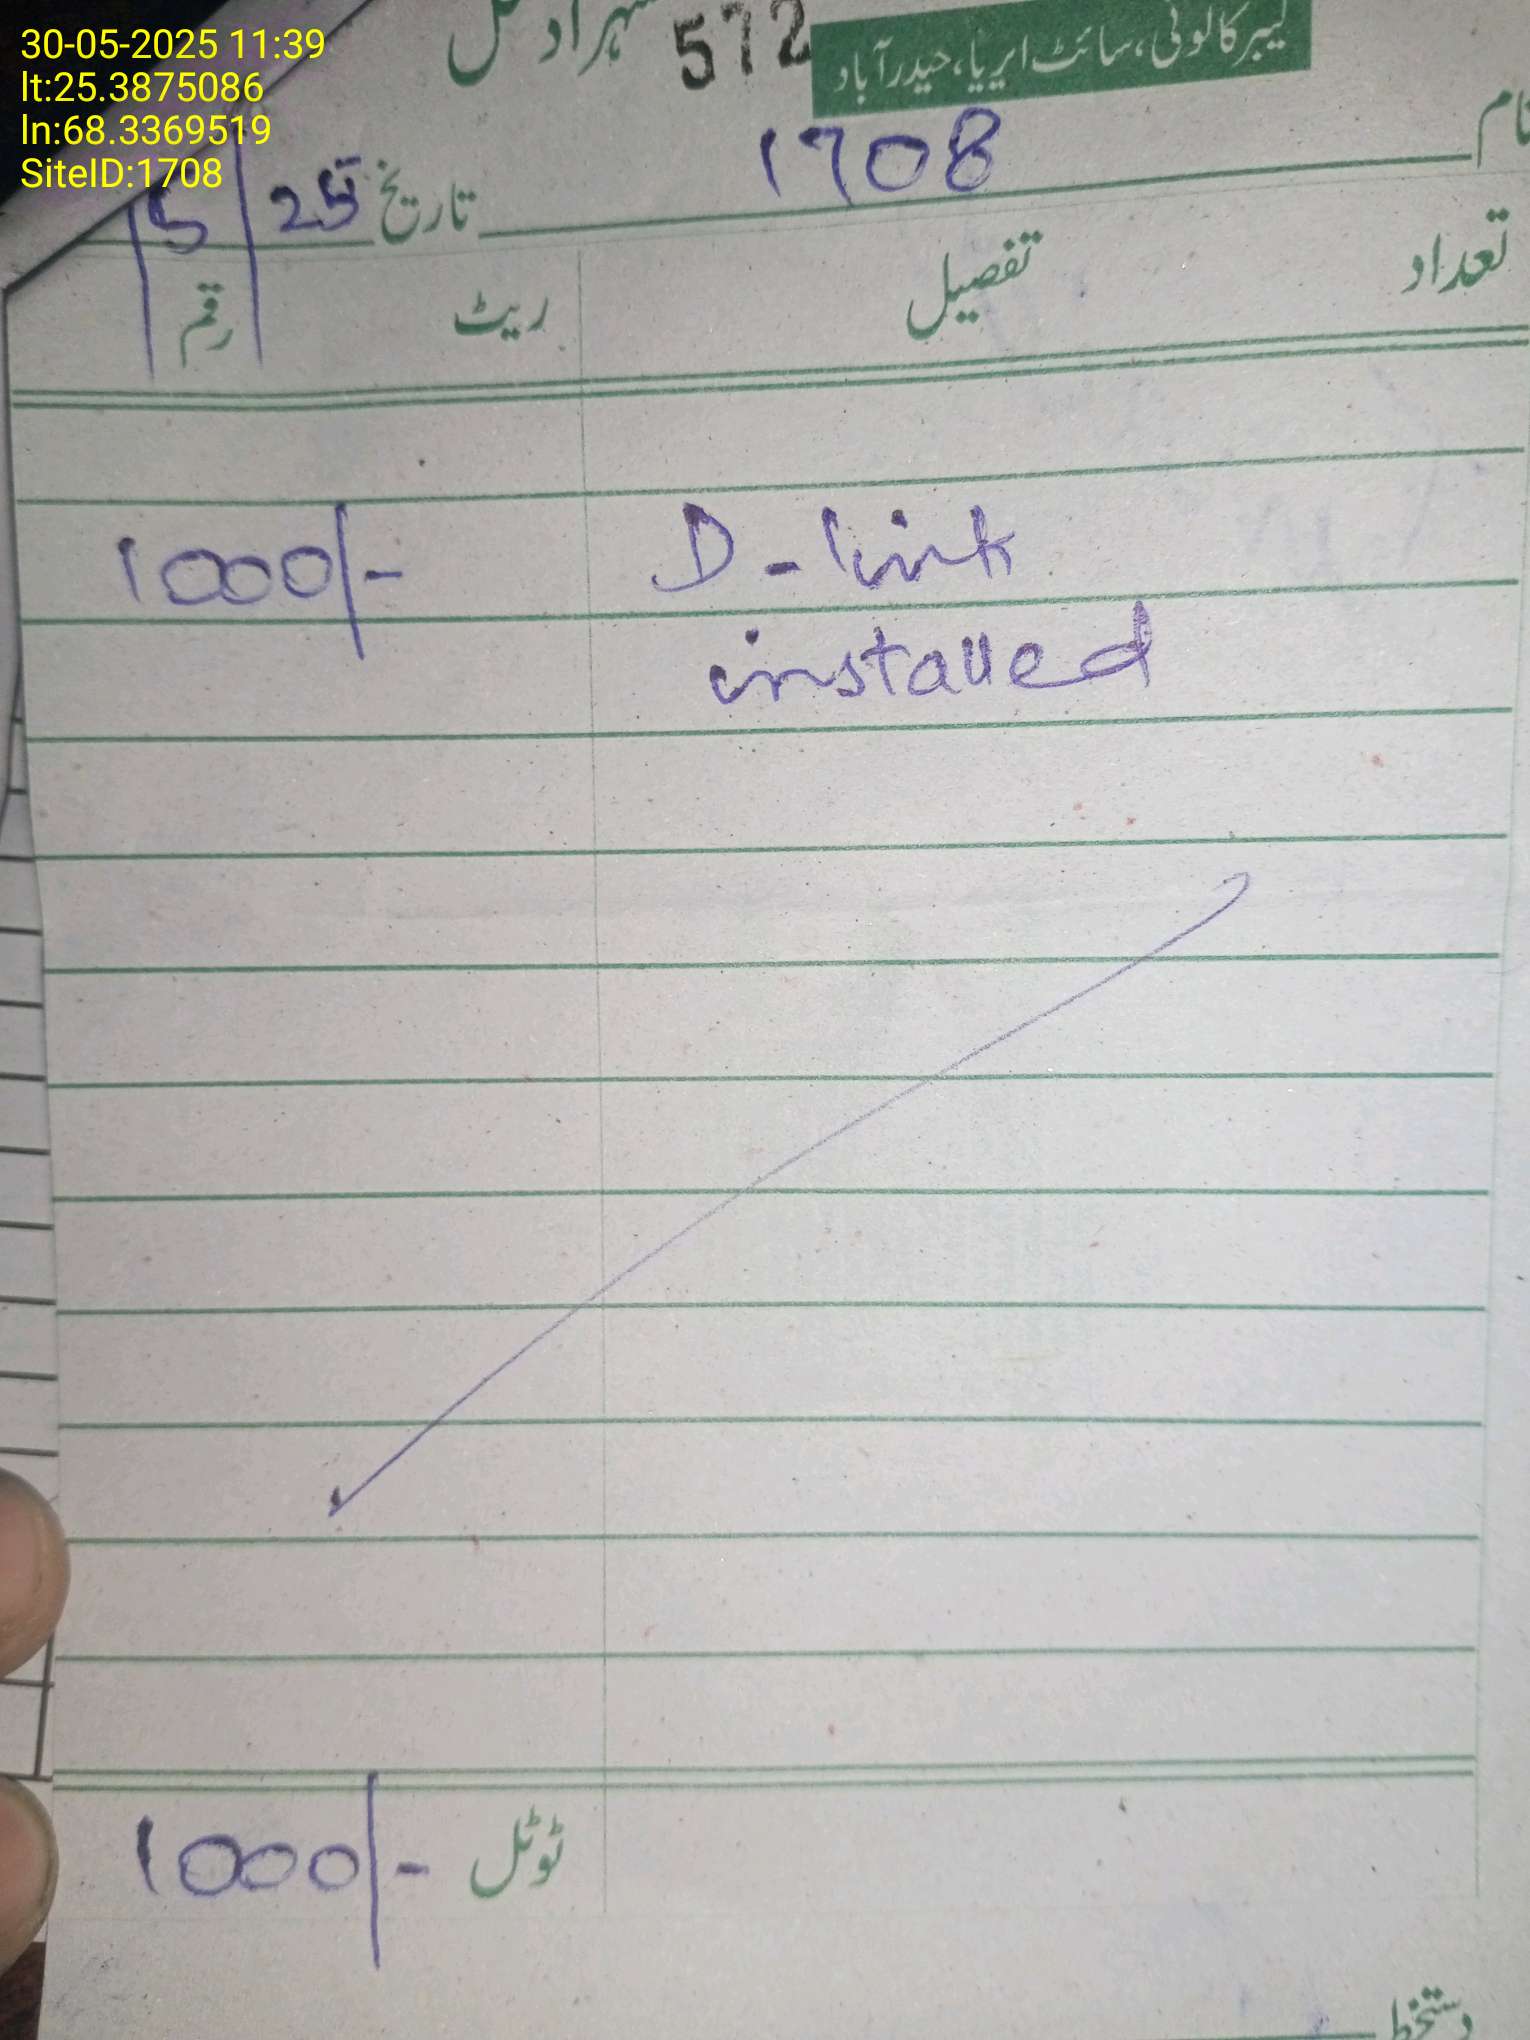 30-05-2025 11:39
lt:25.3875086
ln:68.3369519
SiteID:1708
572
لیبر کالونی، سائٹ ایریا، حیدرآباد
نام 1708
تاریخ 25 / 5 /
تعداد تفصیل ریٹ رقم
D-link 1000/-
installed
ٹوٹل 1000/-
دستخط